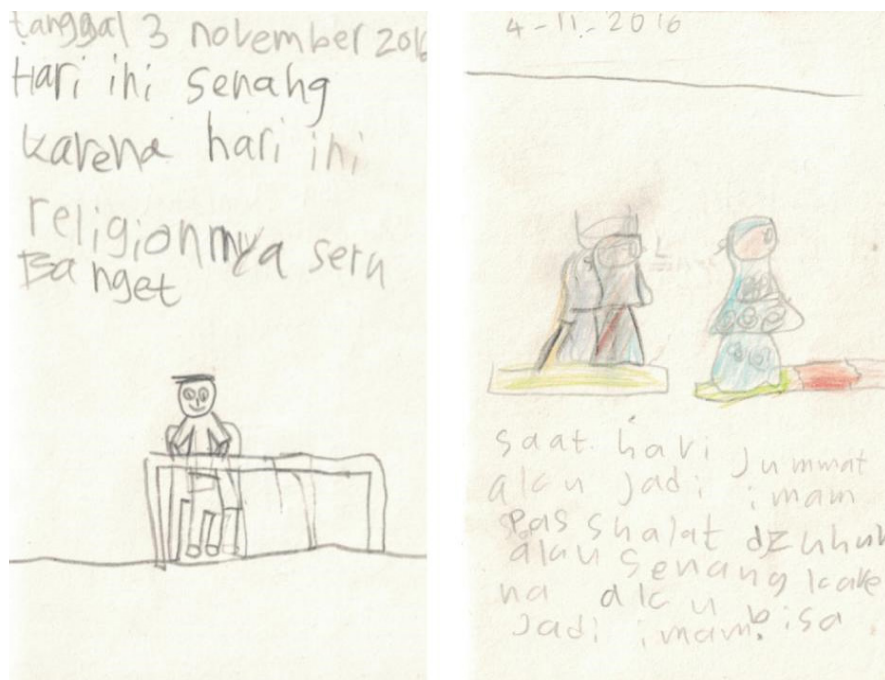 tanggal 3 november 2016
Hari ini senang
karena hari ini
religionnya seru
Banget
4-11-2016
saat hari Jummat
aku jadi imam
pas shalat dzuhur
aku senang kare
na aku bisa
Jadi imam.